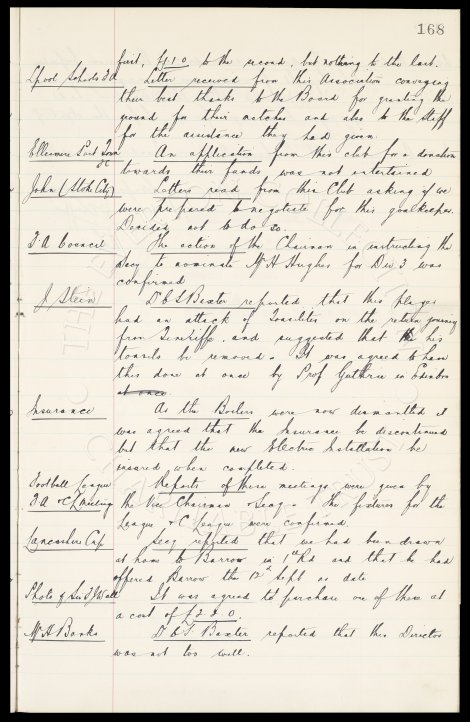 168
first, £110 to the second, but nothing to the last.
L'pool Schools F.A. Letter received from this Association conveying
their best thanks to the Board for granting the
ground for their matches and also to the staff
for the assistance they had given.
Ellesmere Port Town An application from this club for a donation
F.C. towards their funds was not entertained
John (Stoke City) Letters read from this Club asking if we
were prepared to negotiate for this goalkeeper.
Decided not to do so.
F.A Council The action of the Chairman in instructing the
Secy to nominate Mr H Hughes for Div 3 was
confirmed
J Stein Dr C S Baxter reported that this player
had an attack of Tonsilitis on the return journey
from and suggested that his
tonsils be removed. It was agreed to have
this done at once by Prof Guthrie in Edinboro
at once.
Insurance As the Boilers were now dismantled it
was agreed that the Insurance be discontinued
but that the new Electric Installation be
insured when completed.
Football League Reports of these meetings were given by
F.A & C.L Meeting the Vice Chairman & Secy. The fixtures for the
League & C League were confirmed.
Lancashire Cup Secy reported that we had been drawn
at home to Barrow in 1st Rd and that he had
offered Barrow the 13th Sept as date
Photo of Sir F J Wall It was agreed to purchase one of these at
a cost of £2 2 0.
Mr A Banks Dr C S Baxter reported that this Director
was not too well.